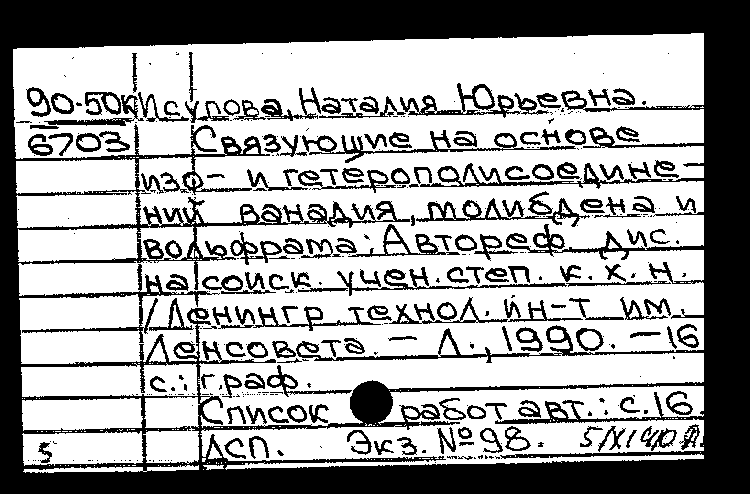 90-50К Исупова, Наталия Юрьевна.
6703 Связующие на основе
изо- и гетерополисоедине-
ний ванадия, молибдена и
вольфрама: Автореф. дис.
на соиск. учен. степ. к. х. н.
/Ленингр. технол. ин-т им.
Ленсовета. - Л., 1990. - 16
с.: граф.
Список работ авт.: с. 16.
5 ДСП. Экз. № 98.